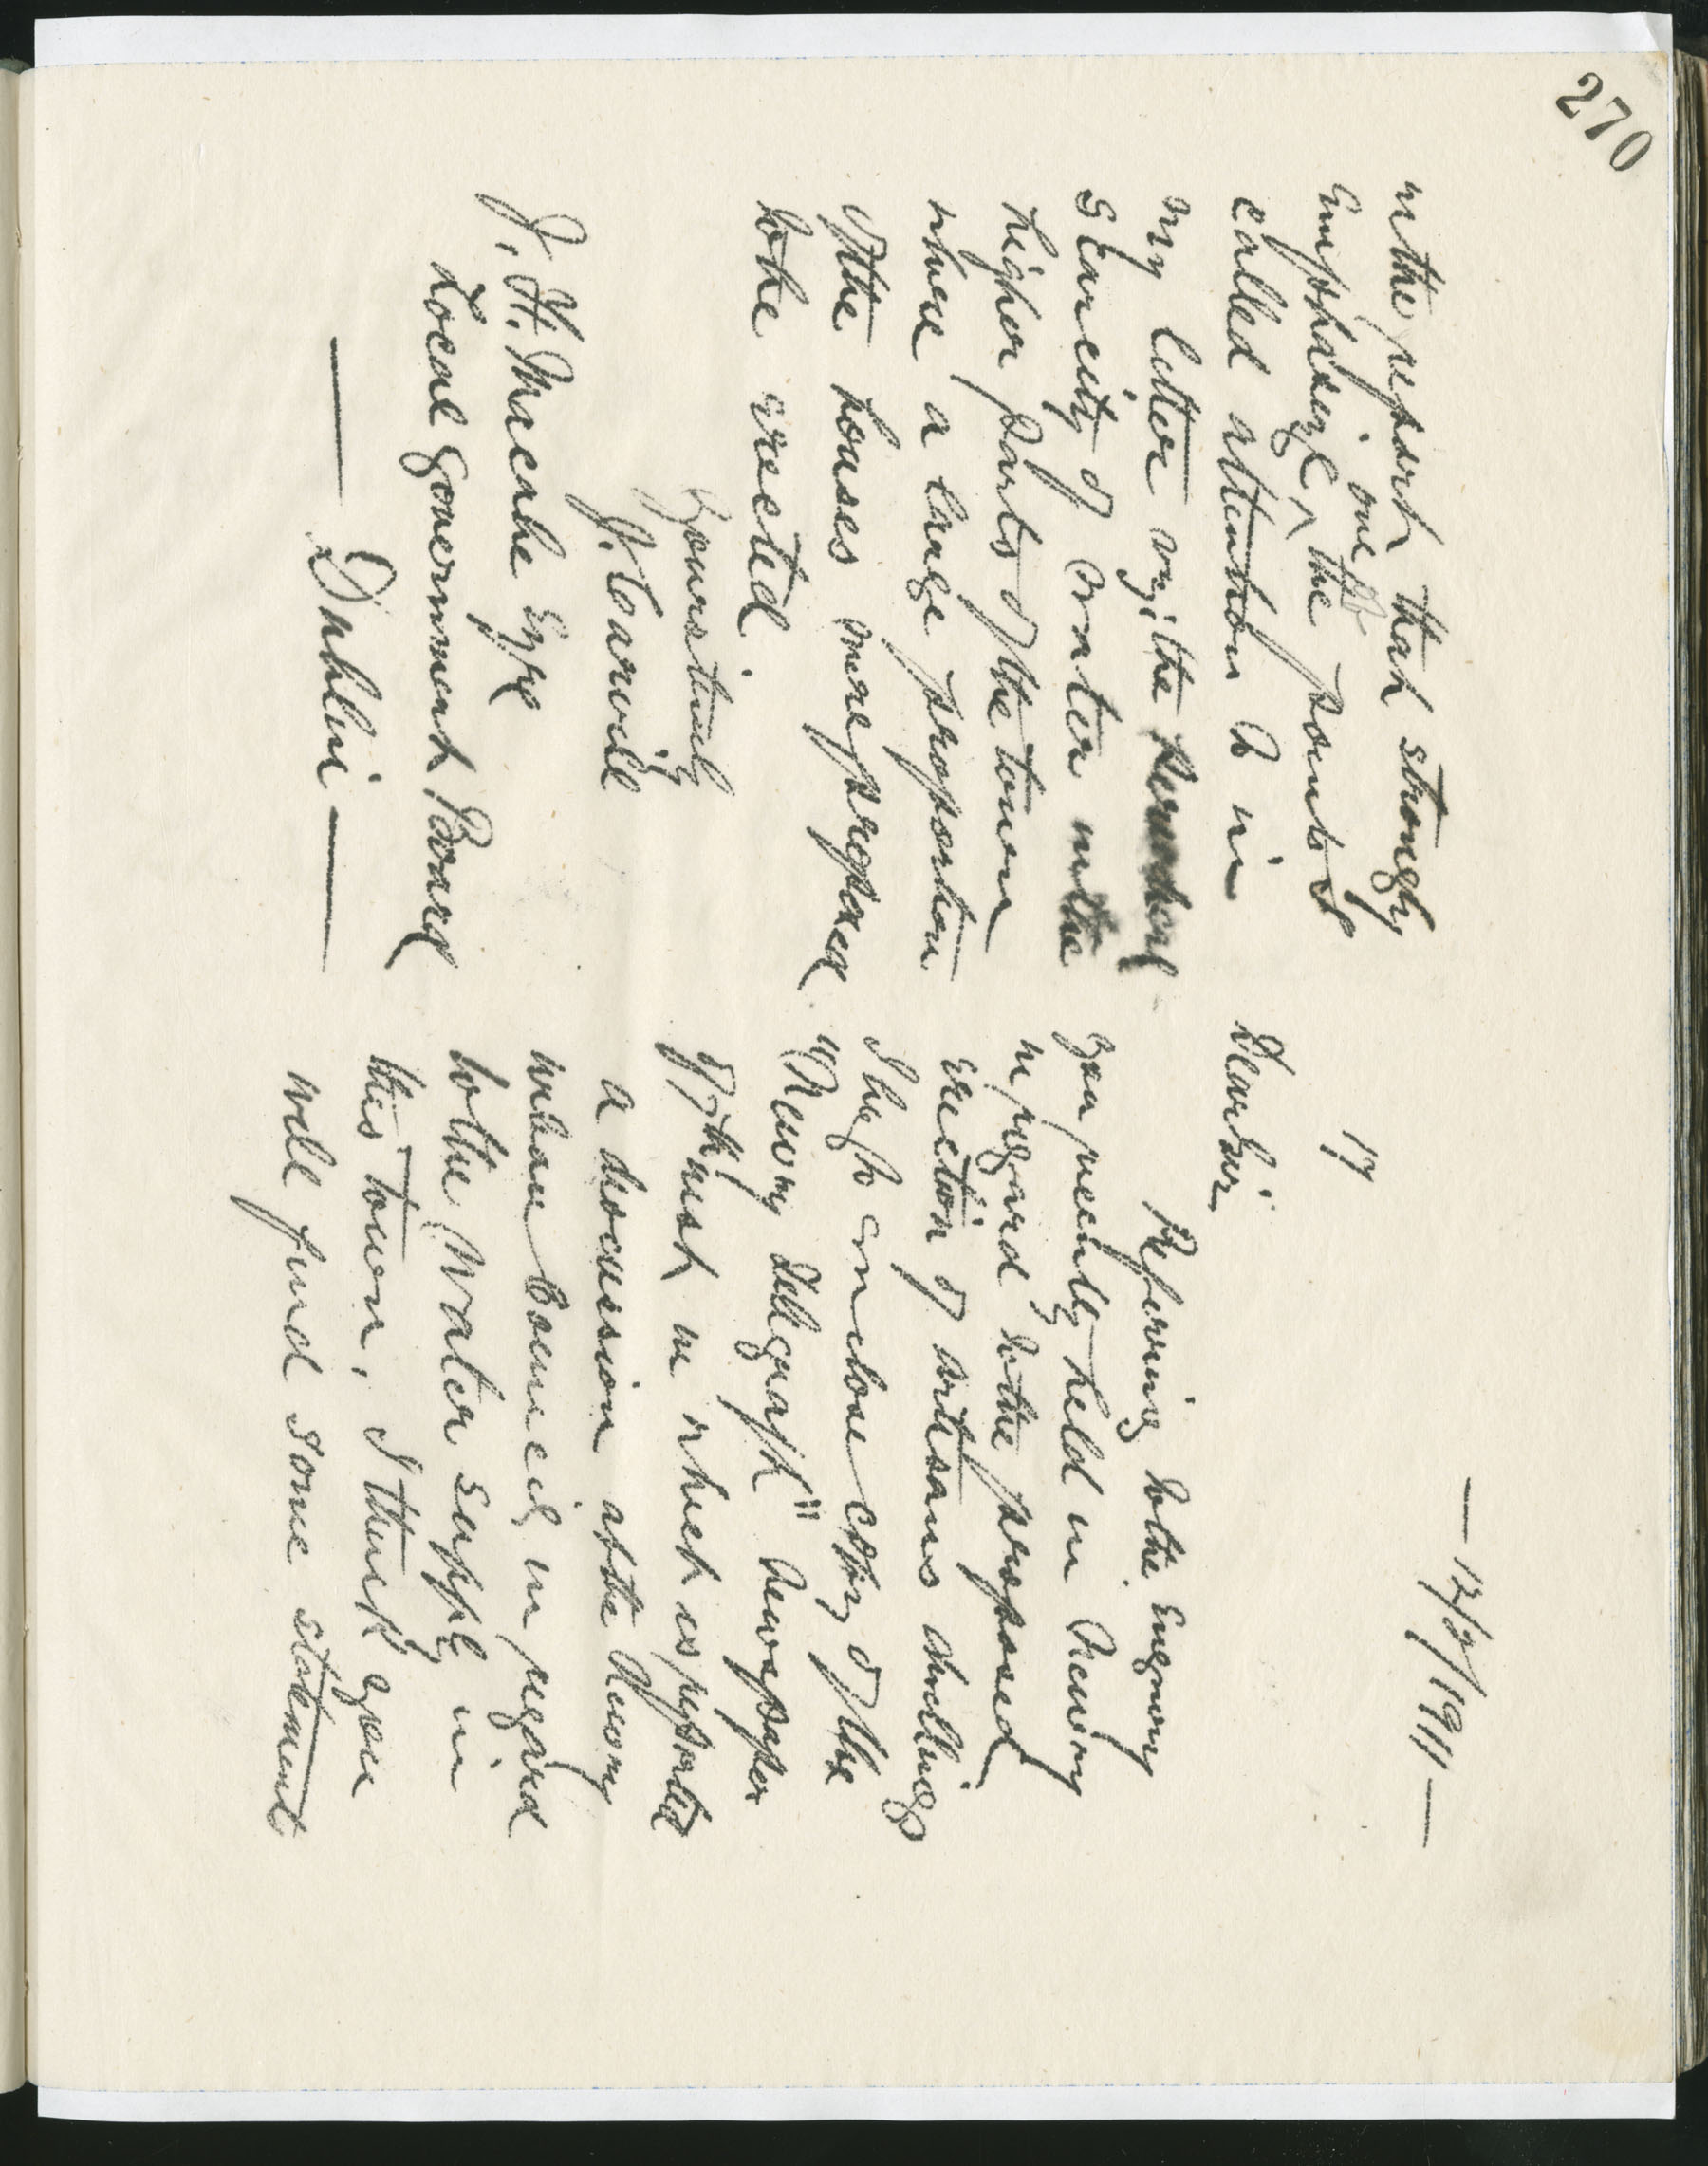 270
— 12/9/1911 —
17
Dear Sir,
Referring to the enquiry
you recently held in Newry
in regard to the proposed
erection of artisans dwellings
I beg to enclose copy of the
"Newry Telegraph" Newspaper
of 9th inst in which is reported
a discussion at the Newry
Urban Council in regard
to the Water Supply in
this town, I think you
will find some statements
in the report that strongly
emphasize one of the points I
called attention to in
my letter viz; the
scarcity of water in the
higher parts of the town
where a large proportion
of the houses were proposed
to be erected
Yours truly
J. Carvill
J. H. MacCabe Esqre
Local Government Board
— Dublin —